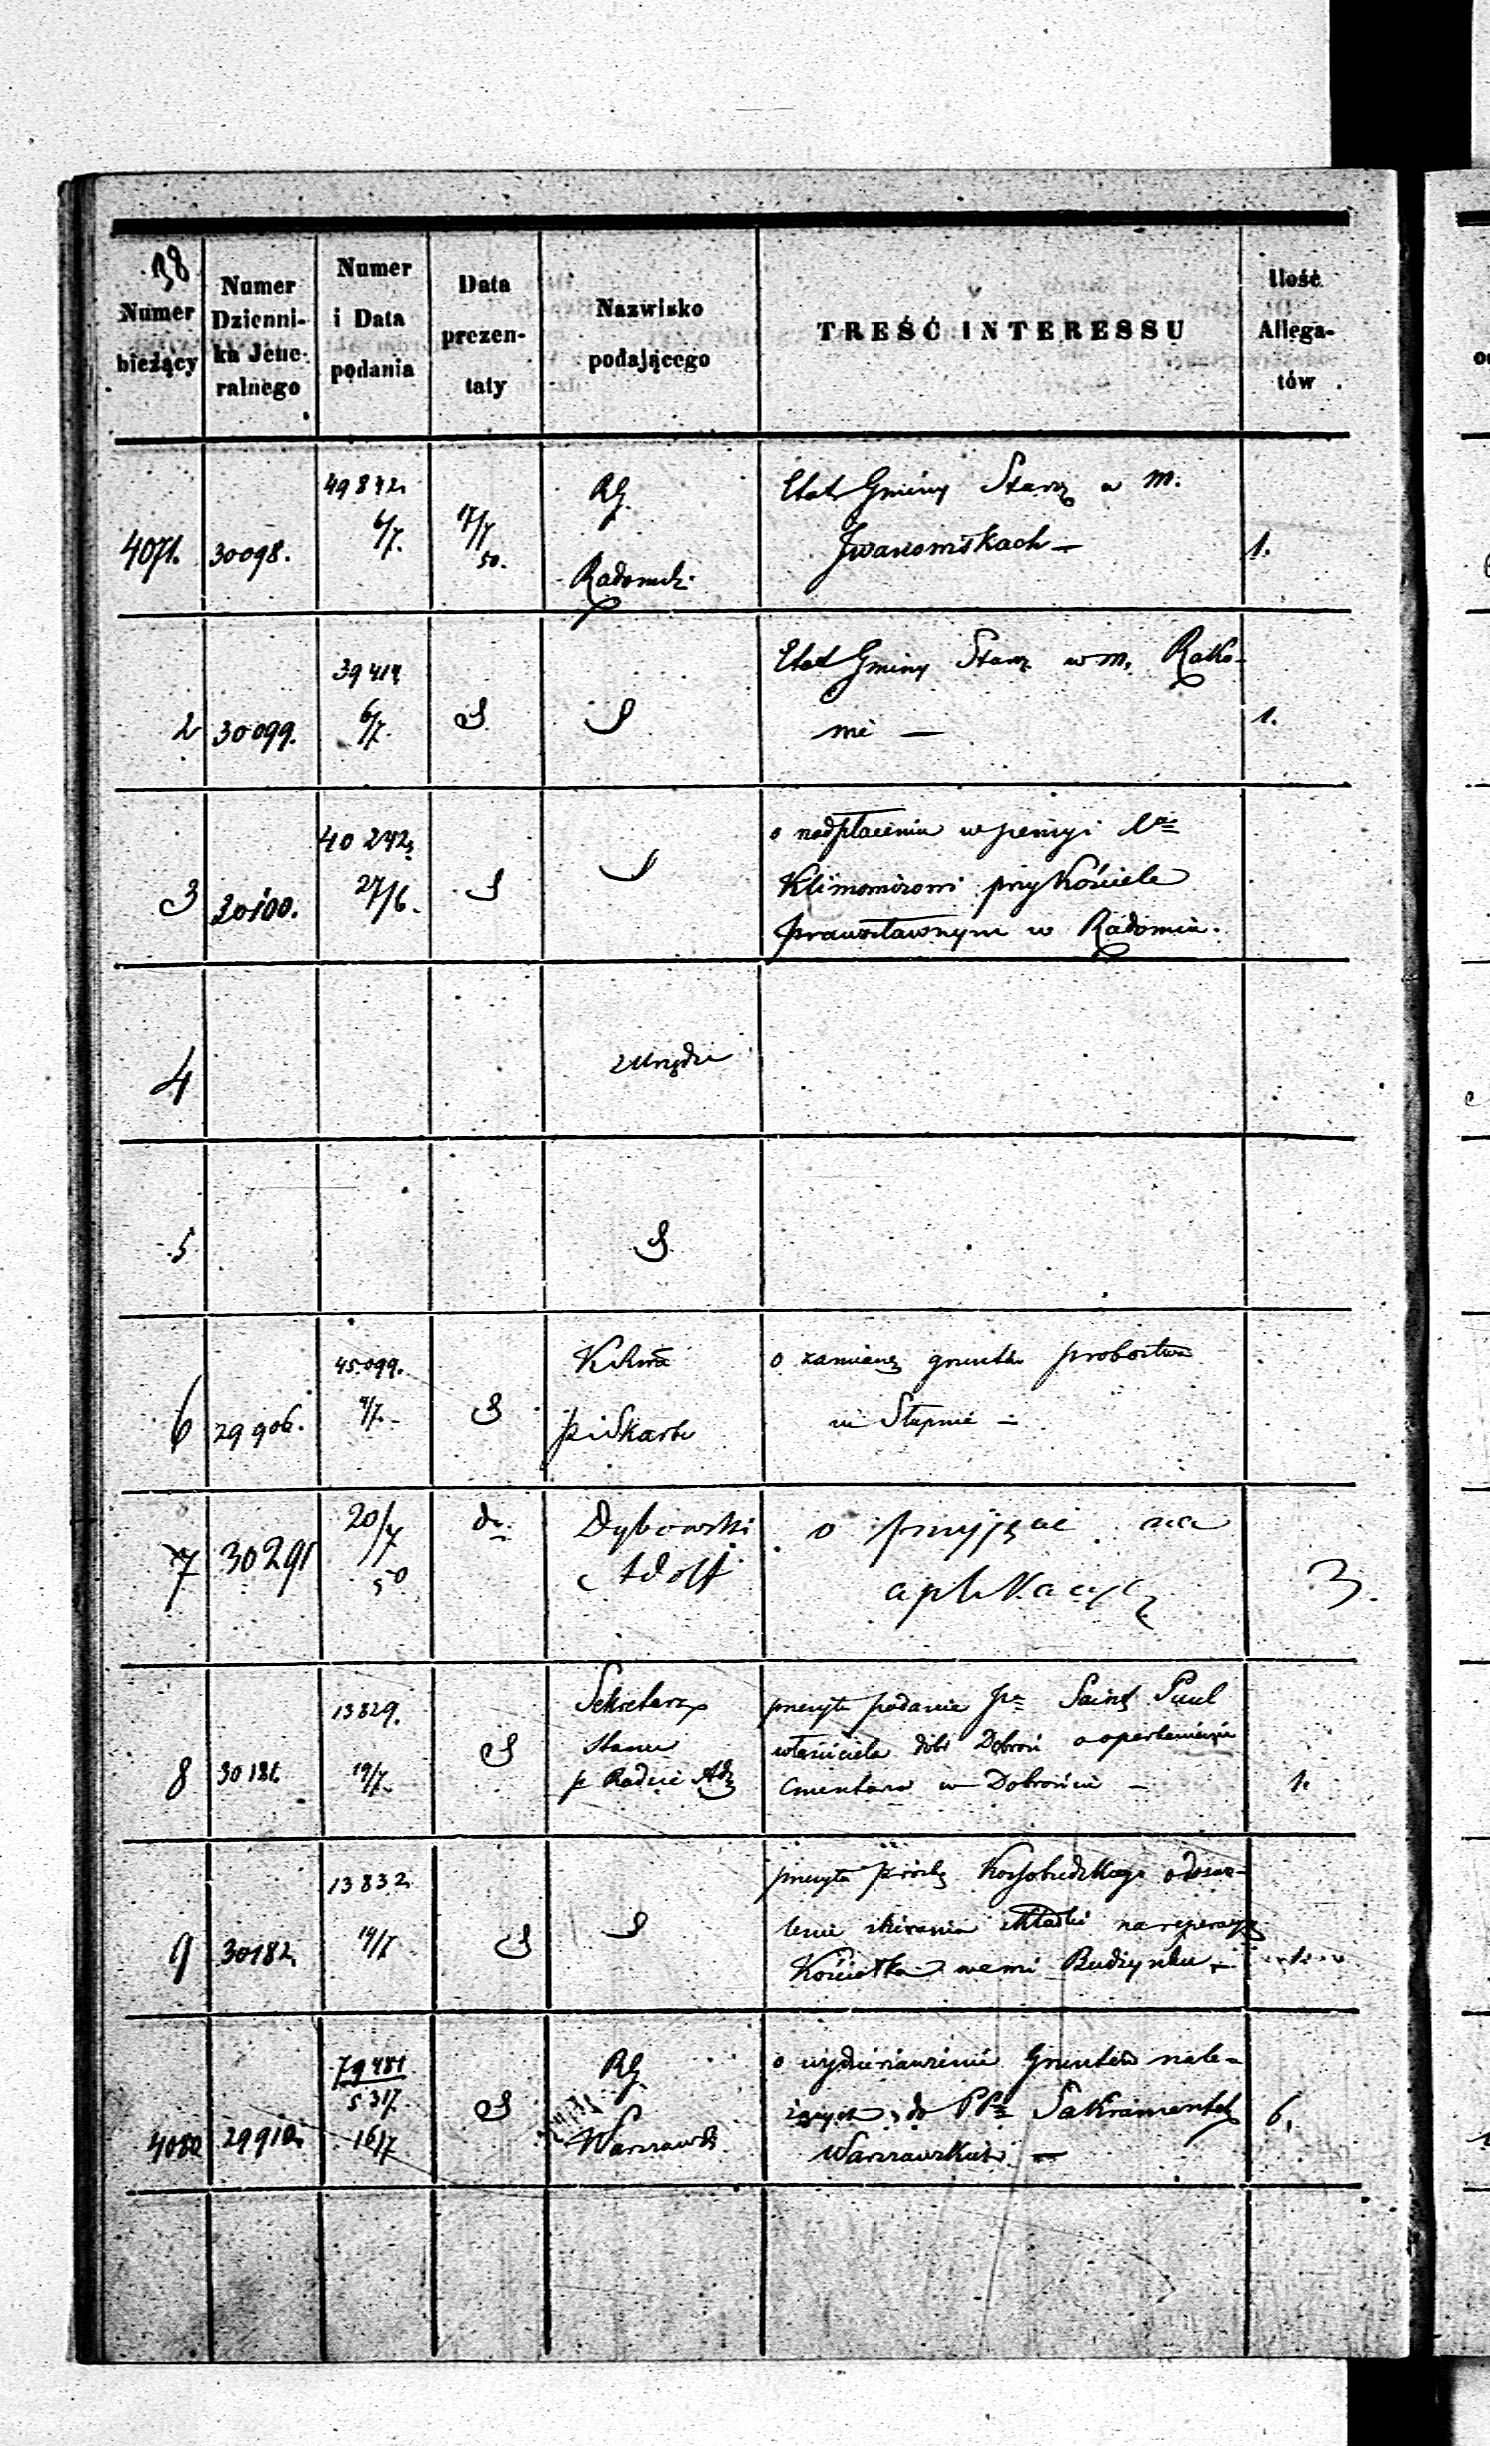 38
Numer
bieżący
Numer
Dzienni-
ka Jene-
ralnego
Numer
i Data
podania
Data
prezen-
taty
Nazwisko
podającego
TREŚĆ INTERESSU
Ilość
Allega-
tów
4071. 30098.
6/7.
17/7
50.
RG
Radomski
Etat Gminy Starz w m.
Iwaniskach —
1.
2 30099.
6/7.
Etat Gminy Starz w m. Rako-
wie —
1.
3 30100.
40242
27/6.
o nadpłaceniu w pensyi
przy Kościele
prawosławnym w Radomiu.
4
z Urzędu
5
6 29906.
45099.
Skarbu
o zamianę gruntu probostwa
w Słupnie —
7 30291
20/7
50
do
Dybowski
Adolf
o przyjęcie na
aplikacyę
3.
8 30181.
13829.
19/7.
Sekretarz
Stanu
p Radzie Adz
przesyła podanie Saint Paul
właściciela dóbr Dobroń
cmentarza w Dobroniu —
1.
9 30182
13832
19/7
przesyła prośbę
lenie zbierania składki na reperacyę
Kościołka we wsi Budzynku —
1.
4080 29910.
79481
5317.
16/7
RG
Warszawski
o wydzierżawienie Gruntów nale-
żących do PP Sakramentek
Warszawskich —
6.